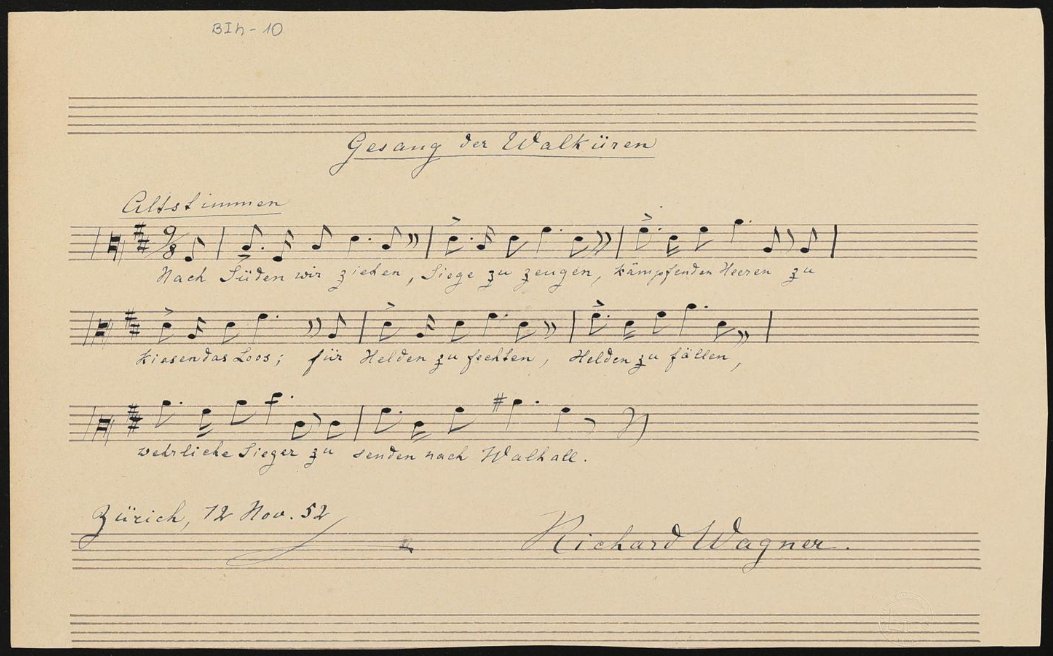 BIh-10
Gesang der Walküren
Altstimmen
9/8
Nach Süden wir ziehen, Siege zu zeugen, kämpfenden Heeren zu
kiesen das Loos; für Helden zu fechten, Helden zu fällen,
wehrliche Sieger zu senden nach Walhall.
Zürich, 12 Nov. 52
Richard Wagner.